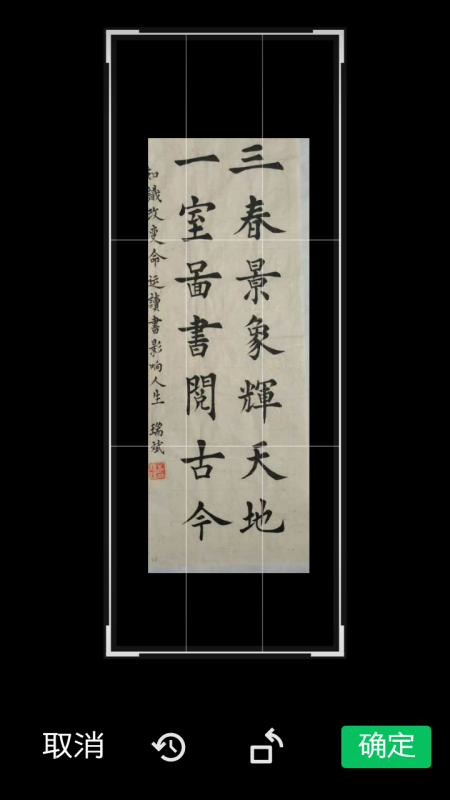 三春景象輝天地
一室啚書閱古今
知識改变命运讀書影响人生 瑞斌
取消
确定